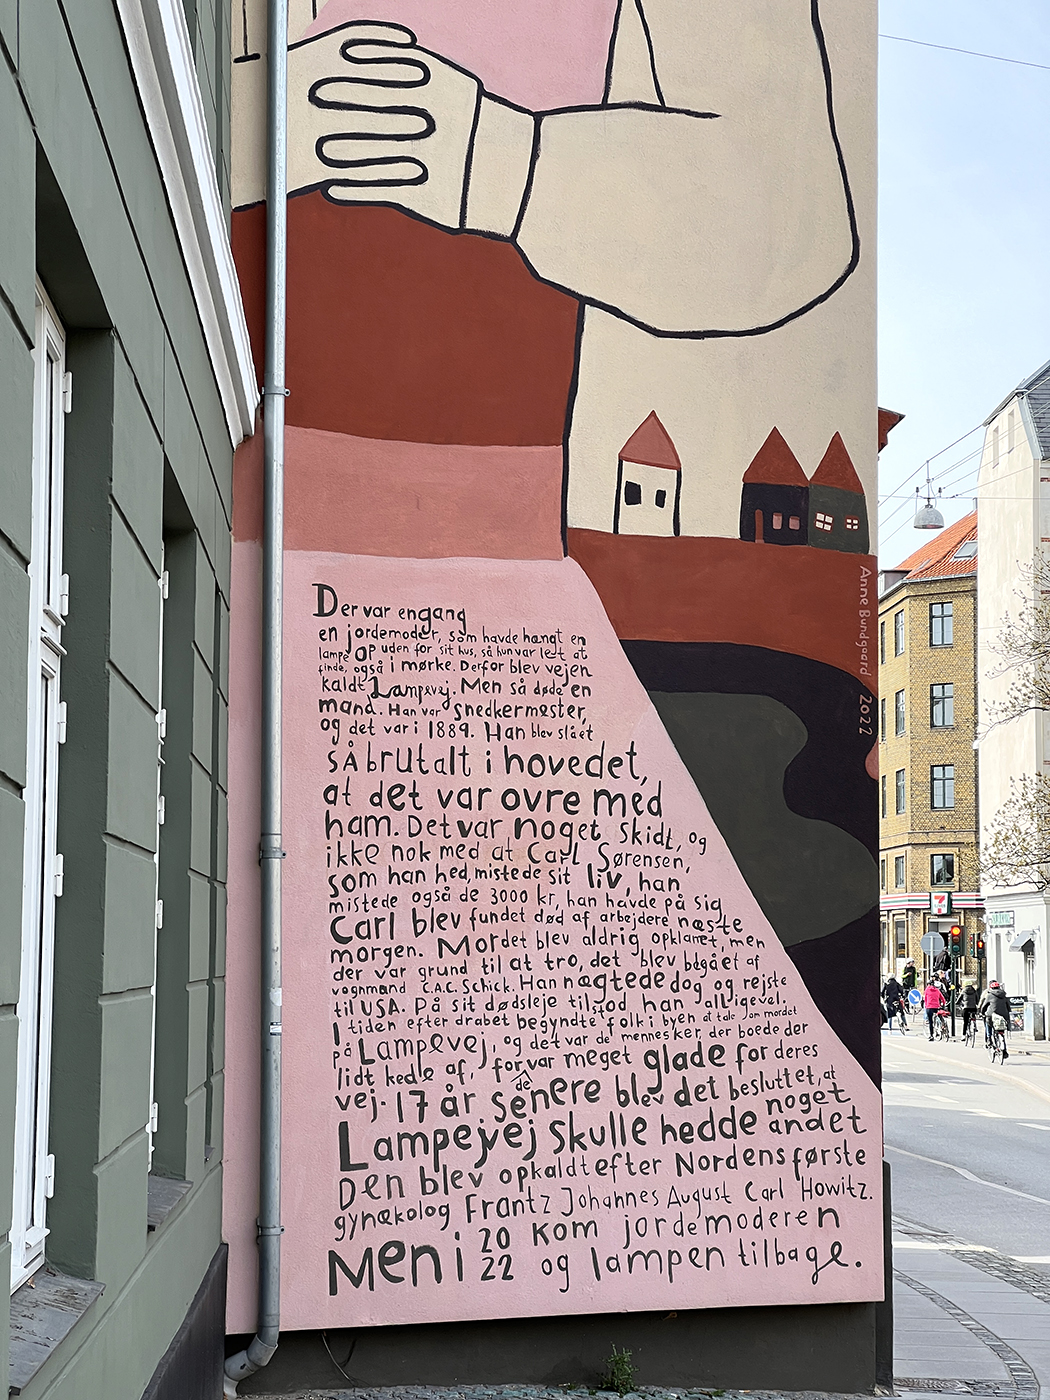 Der var engang
en jordemoder, som havde hængt en
lampe op uden for sit hus, så hun var let at
finde, også i mørke. Derfor blev vejen
kaldt Lampevej. Men så døde en
mand. Han var snedkermester,
og det var i 1889. Han blev slået
så brutalt i hovedet,
at det var ovre med
ham. Det var noget skidt, og
ikke nok med at Carl Sørensen,
som han hed, mistede sit liv, han
mistede også de 3000 kr, han havde på sig
Carl blev fundet død af arbejdere næste
morgen. Mordet blev aldrig opklaret, men
der var grund til at tro, det blev begået af
vognmand C.A.C. Schick. Han nægtede dog og rejste
til USA. På sit dødsleje tilstod han alligevel.
I tiden efter drabet begyndte folk i byen at tale om mordet
på Lampevej, og det var de mennesker, der boede der
lidt kede af, for de var meget glade for deres
vej. 17 år senere blev det besluttet, at
Lampevej skulle hedde noget andet
Den blev opkaldt efter Nordens første
gynækolog Frantz Johannes August Carl Howitz.
Men i 2022 kom jordemoderen
og lampen tilbage.
Anne Bundgaard 2022